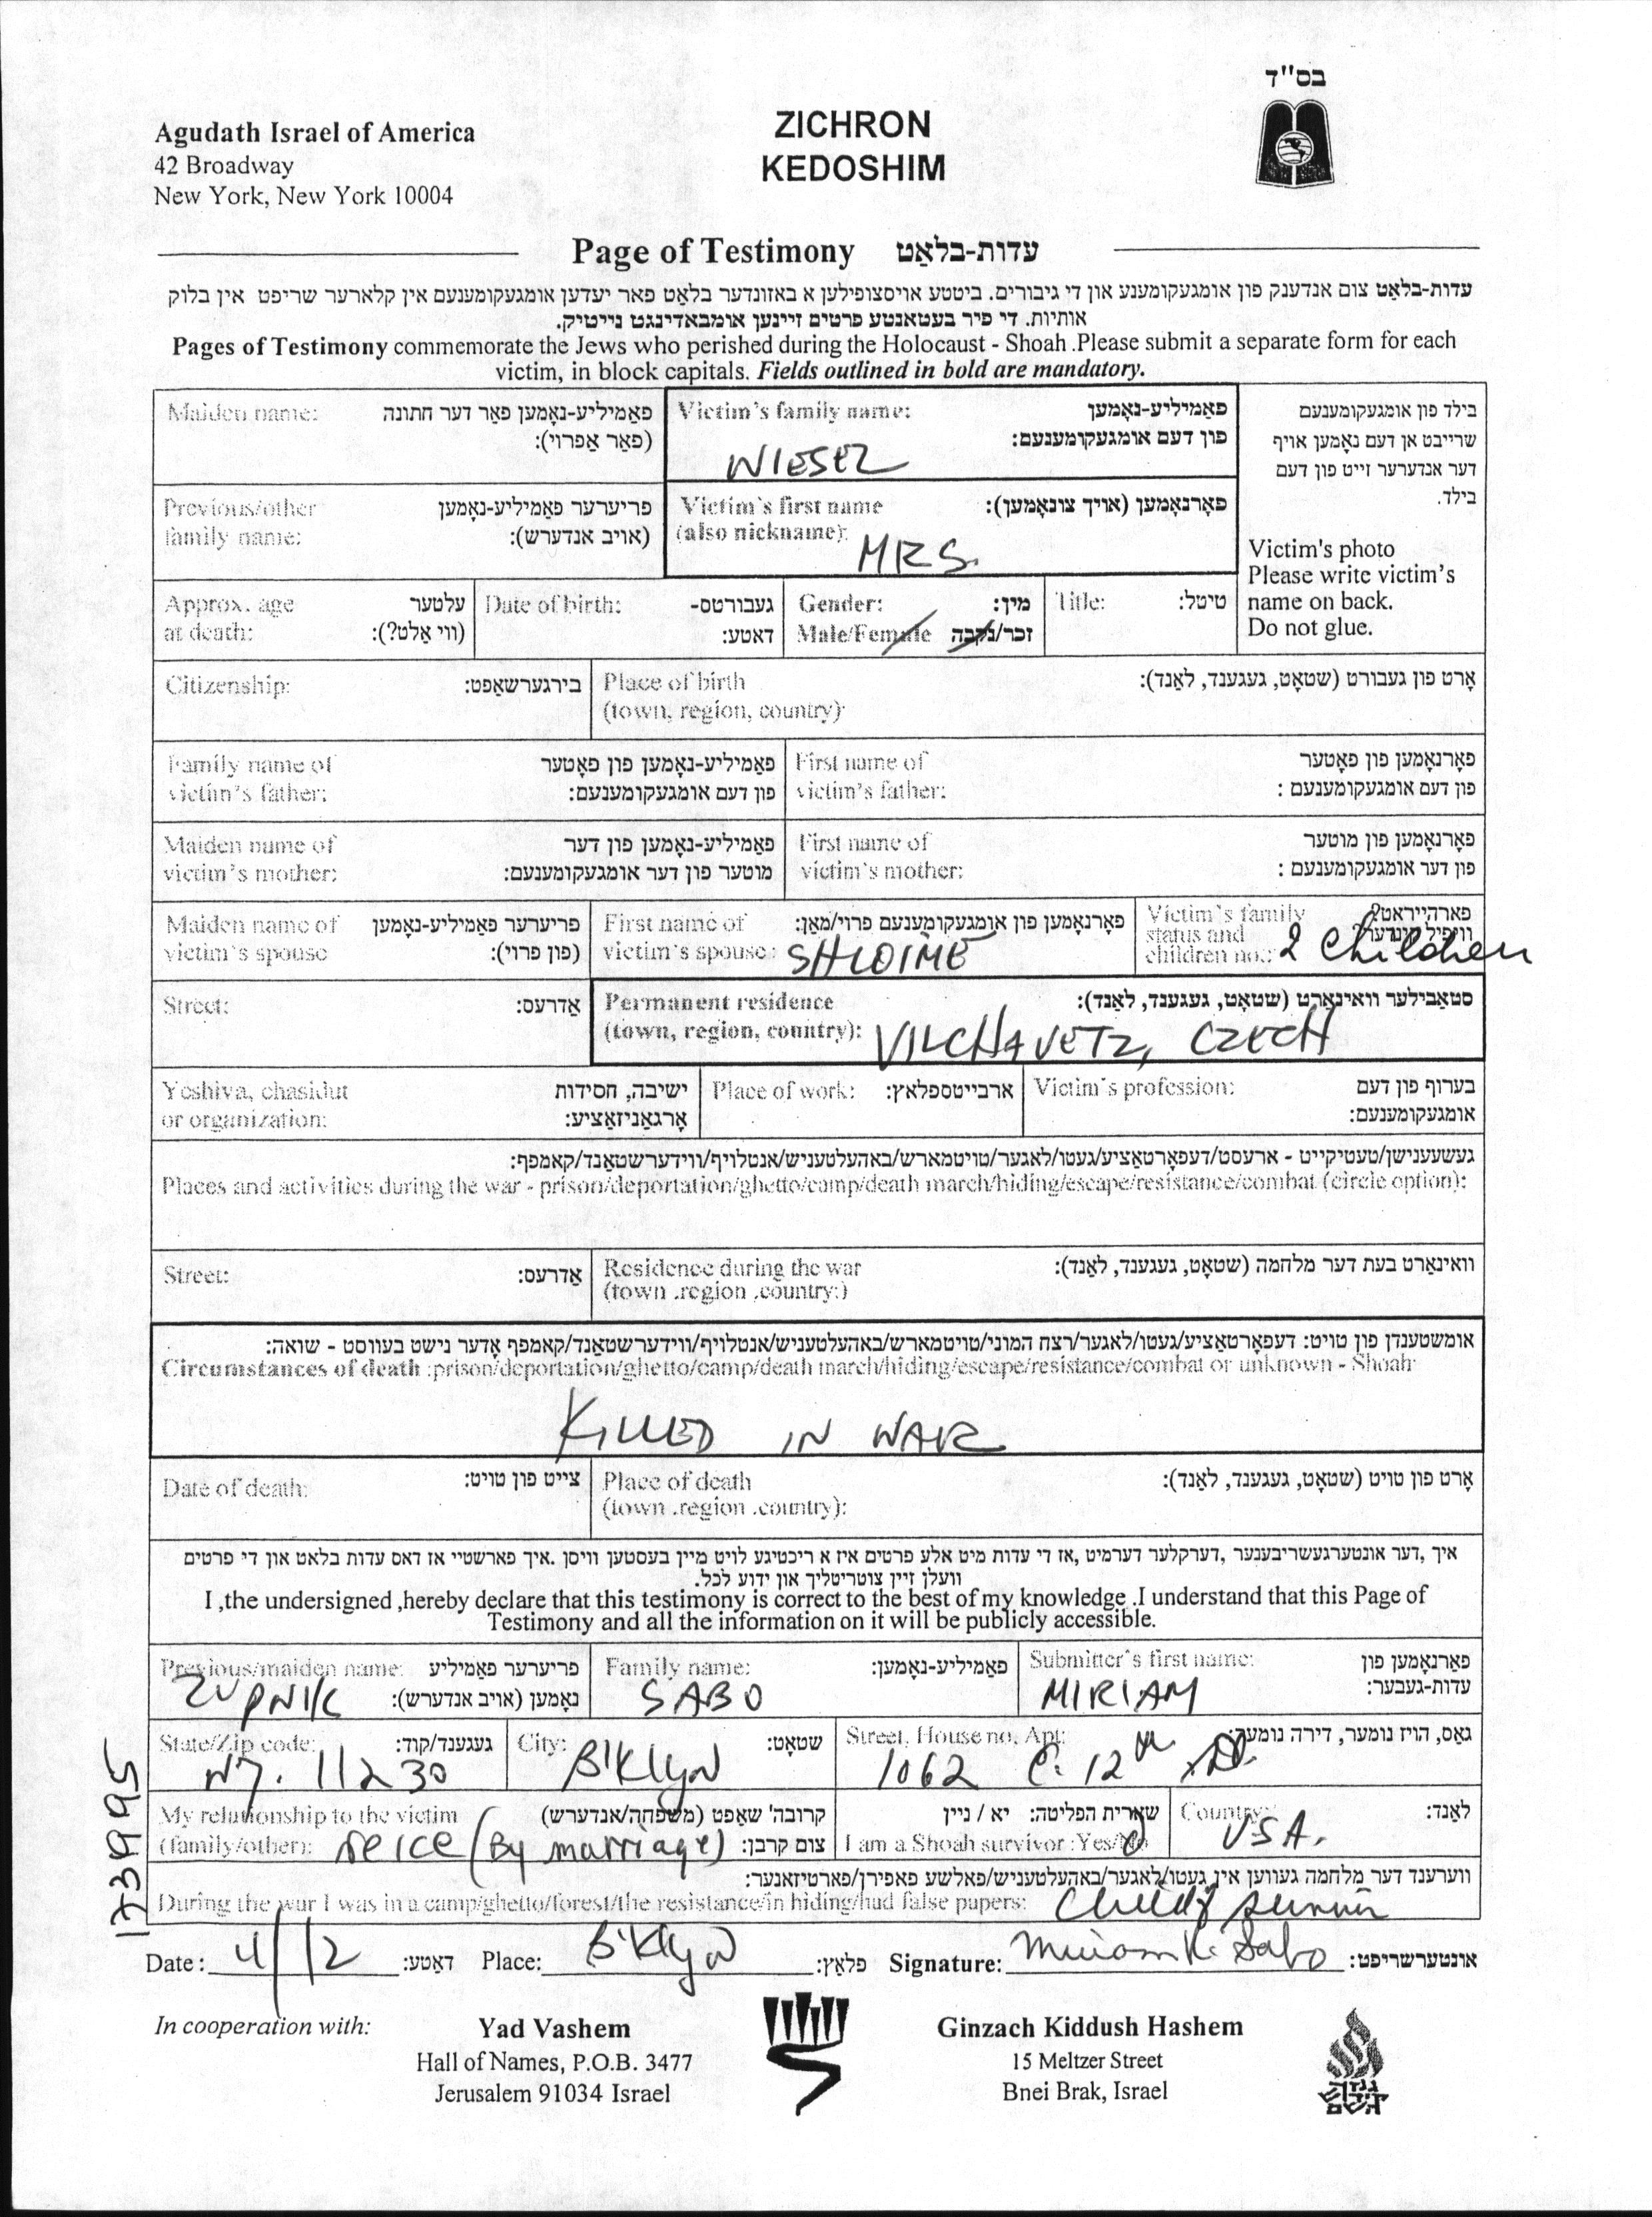 בס"ד
Agudath Israel of America
42 Broadway
New York, New York 10004
ZICHRON
KEDOSHIM
Page of Testimony עדות-בלאַט
עדות-בלאַט צום אנדענק פון אומגעקומענע און די גיבורים. ביטטע אויסצופילען א באזונדער בלאַט פאר יעדען אומגעקומענעם אין קלארער שריפט אין בלוק
אותיות. די פיר בעטאנטע פרטים זיינען אומבאדינגט נייטיק.
Pages of Testimony commemorate the Jews who perished during the Holocaust - Shoah .Please submit a separate form for each
victim, in block capitals. Fields outlined in bold are mandatory.
Maiden name: פאַמיליע-נאָמען פאַר דער חתונה
(פאַר אַפרוי):
Victim's family name: פאַמיליע-נאָמען
פון דעם אומגעקומענעם:
WIESEL
בילד פון אומגעקומענעם
שרייבט אן דעם נאָמען אויף
דער אנדערער זייט פון דעם
בילד.
Victim's photo
Please write victim's
name on back.
Do not glue.
Previous/other פריערער פאַמיליע-נאָמען
family name: (אויב אנדערש):
Victim's first name פאָרנאָמען (אויך צונאָמען):
(also nickname):
MRS.
Approx. age עלטער
at death: (ווי אַלט?):
Date of birth: געבורטס-
דאטע:
Gender: מין:
Male/Female זכר/נקבה
Title: טיטל:
Citizenship: בירגערשאַפט:
Place of birth אָרט פון געבורט (שטאָט, געגענד, לאַנד):
(town, region, country)
Family name of פאַמיליע-נאָמען פון פאָטער
victim's father: פון דעם אומגעקומענעם:
First name of פאָרנאָמען פון פאָטער
victim's father: פון דעם אומגעקומענעם :
Maiden name of פאַמיליע-נאָמען פון דער
victim's mother: מוטער פון דער אומגעקומענעם:
First name of פאָרנאָמען פון מוטער
victim's mother: פון דער אומגעקומענעם :
Maiden name of פריערער פאַמיליע-נאָמען
victim's spouse (פון פרוי):
First name of פאָרנאָמען פון אומגעקומענעם פרוי/מאַן:
victim's spouse: SHLOIME
Victim's family פארהייראט?
status and
children no.: 2 Children
Street: אַדרעס:
Permanent residence סטאַבילער וואוינאָרט (שטאָט, געגענד, לאַנד):
(town, region, country): VILCHAVETZ, CZECH
Yeshiva, chasidut ישיבה, חסידות
or organization: אָרגאַניזאַציע:
Place of work: ארבייטספלאץ:
Victim's profession: בערוף פון דעם
אומגעקומענעם:
געשעענישן/טעטיקייט - ארעסט/דעפאָרטאַציע/געטו/לאגער/טויטמארש/באהעלטעניש/אנטלויף/ווידערשטאַנד/קאמפף:
Places and activities during the war - prison/deportation/ghetto/camp/death march/hiding/escape/resistance/combat (circle option):
Street: אַדרעס:
Residence during the war וואוינאָרט בעת דער מלחמה (שטאָט, געגענד, לאַנד):
(town .region .country:)
אומשטענדן פון טויט: דעפאָרטאַציע/געטו/לאגער/רצח המוני/טויטמארש/באהעלטעניש/אנטלויף/ווידערשטאַנד/קאמפף אָדער נישט בעווסט - שואה:
Circumstances of death :prison/deportation/ghetto/camp/death march/hiding/escape/resistance/combat or unknown - Shoah
KILLED IN WAR
Date of death: צייט פון טויט:
Place of death אָרט פון טויט (שטאָט, געגענד, לאַנד):
(town .region .country):
איך ,דער אונטערגעשריבענער ,דערקלער דערמיט ,אז די עדות מיט אלע פרטים איז א ריכטיגע לויט מיין בעסטען וויסן .איך פארשטיי אז דאס עדות בלאט און די פרטים
וועלן זיין צוטריטליך און ידוע לכל.
I ,the undersigned ,hereby declare that this testimony is correct to the best of my knowledge .I understand that this Page of
Testimony and all the information on it will be publicly accessible.
Previous/maiden name: פריערער פאַמיליע
ZUPNIK נאָמען (אויב אנדערש):
Family name: פאַמיליע-נאָמען:
SABO
Submitter's first name: פאַרנאָמען פון
עדות-געבער:
MIRIAM
State/Zip code: געגענד/קוד:
NY. 11230
City: שטאָט:
B'klyn
Street, House no, Apt: גאַס, הויז נומער, דירה נומער:
1062 E. 12th St.
My relationship to the victim קרובה' שאַפט (משפחה/אנדערש)
(family/other): neice (By marriage) צום קרבן:
שארית הפליטה: יא / ניין
I am a Shoah survivor :Yes/No
Country: לאַנד:
USA.
ווערענד דער מלחמה געווען אין געטו/לאגער/באהעלטעניש/פאלשע פאפירן/פארטיזאנער:
During the war I was in a camp/ghetto/forest/the resistance/in hiding/had false papers:
Date: 4/12 דאַטע: Place: B'klyn פלאַץ: Signature: Miriam K. Sabo אונטערשריפט:
1739995
In cooperation with:
Yad Vashem
Hall of Names, P.O.B. 3477
Jerusalem 91034 Israel
Ginzach Kiddush Hashem
15 Meltzer Street
Bnei Brak, Israel
גנזך
קידוש
השם